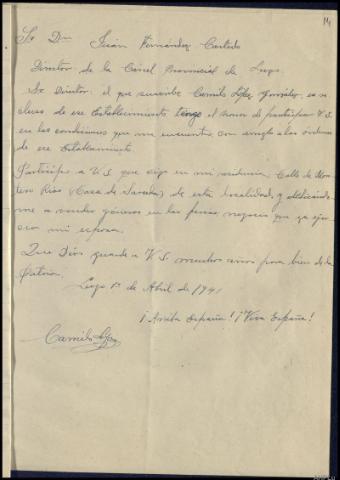 14
Sr Dn Juán Fernández
Director de la Cárcel Provincial de Lugo
Sr Director: el que suscribe Camilo López González, ex-re
cluso de ese Establecimiento tengo el honor de participar V.S.
en las condiciones que me encuentro con arreglo a las órdenes
de ese Establecimiento
Participo a V.S. que sigo en mi residencia Calle de Mon
tero Rios (Casa de Sanchez) de esta localidad, y dedicando
me a vender géneros en las ferias, negocio que ya ejer
ció mi esposa.
Que Dios guarde a V.S. muchos años para bien de la
Patria.
Lugo 1º de Abril de 1941
¡Arriba España! ¡Viva España!
Camilo López